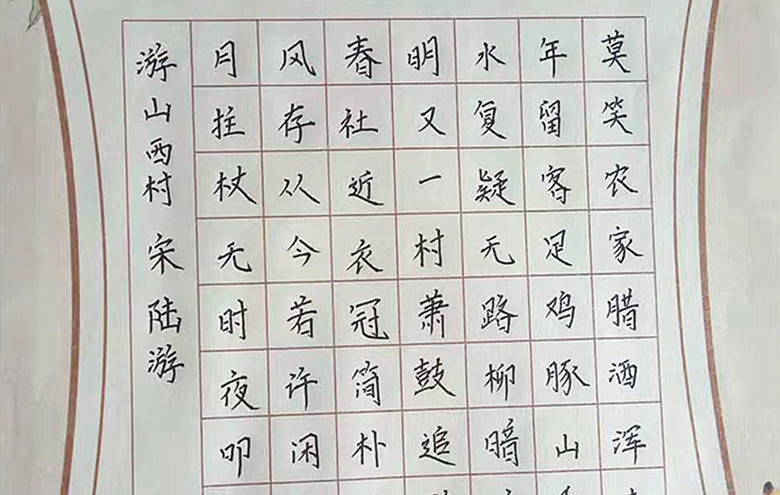 莫笑农家腊酒浑
年留客足鸡豚山
水复疑无路柳暗
明又一村萧鼓追
春社近衣冠简朴
风存从今若许闲
月拄杖无时夜叩
游山西村 宋 陆游